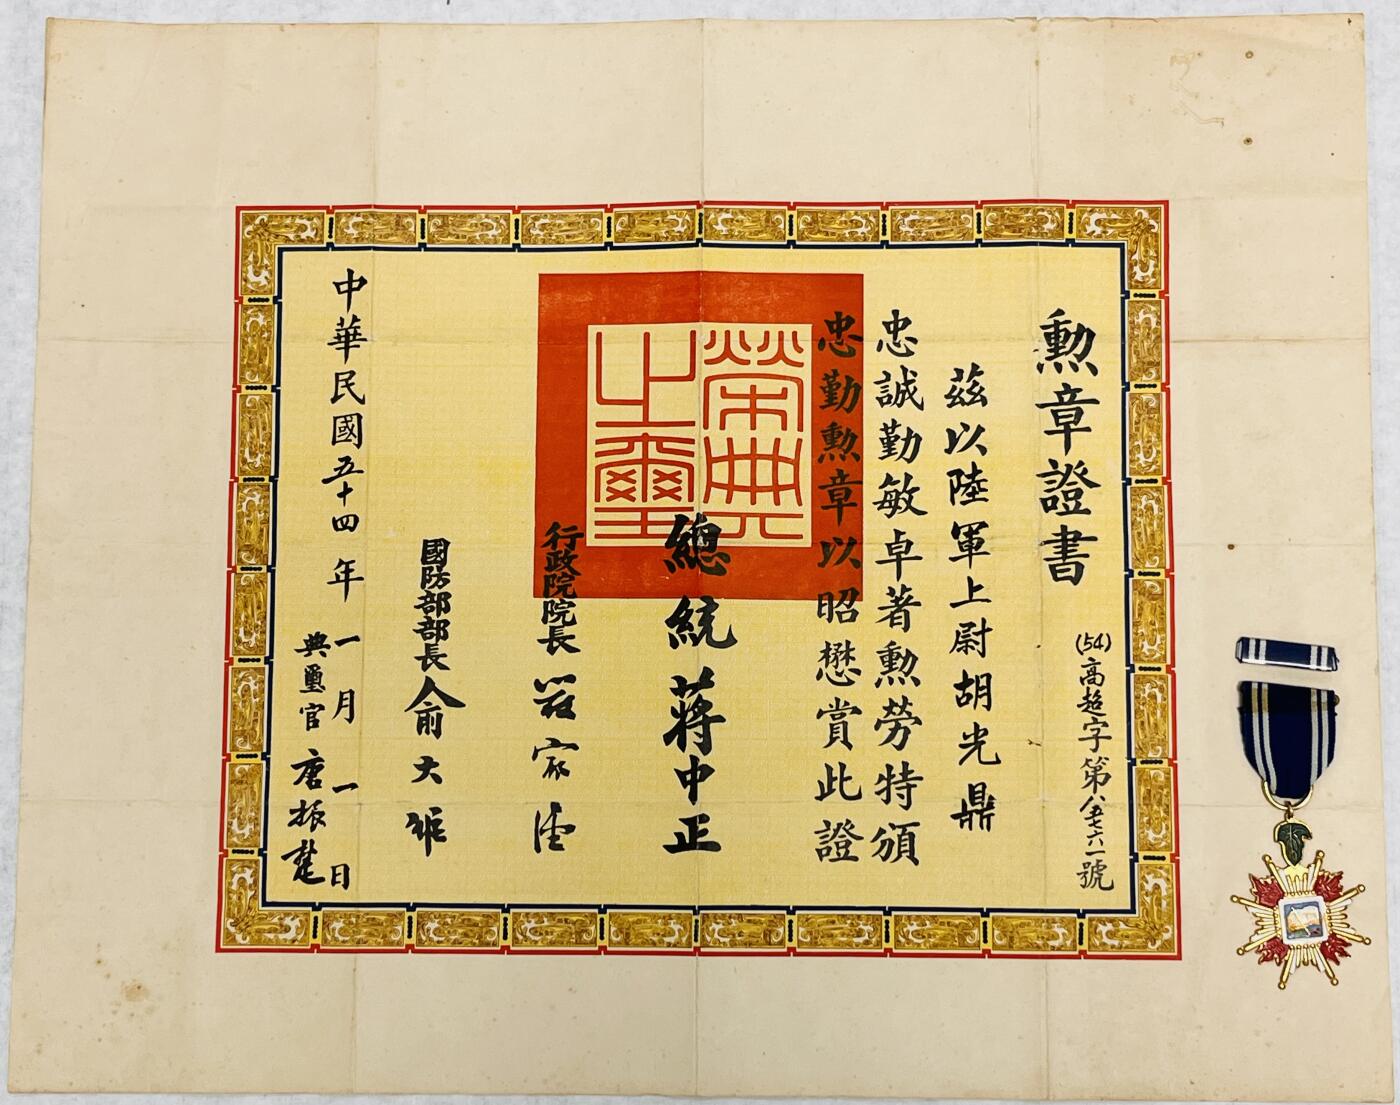 勲章證書
(54)高超字第八五七六一號
茲以陸軍上尉胡光鼎
忠誠勤敏卓著勲勞特頒
忠勤勲章以昭懋賞此證
榮典之璽
總統 蔣中正
行政院院長 嚴家淦
國防部部長 俞大維
中華民國五十四年一月一日
典璽官 唐振楚